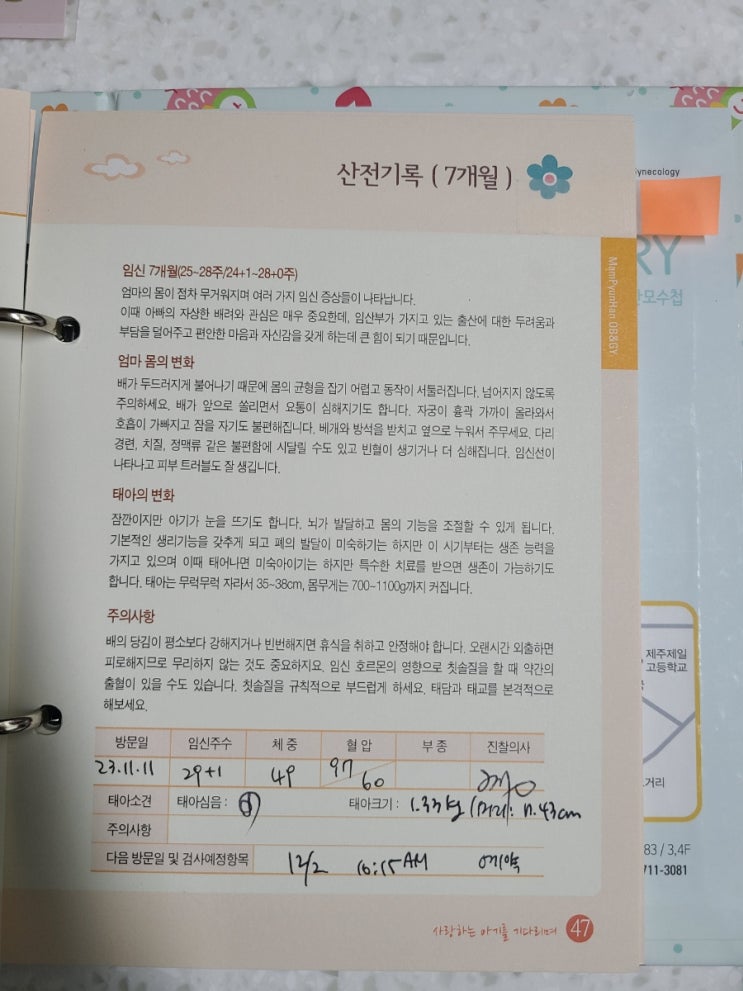 산전기록 ( 7개월 )
임신 7개월(25~28주/24+1~28+0주)
엄마의 몸이 점차 무거워지며 여러 가지 임신 증상들이 나타납니다.
이때 아빠의 자상한 배려와 관심은 매우 중요한데, 임산부가 가지고 있는 출산에 대한 두려움과
부담을 덜어주고 편안한 마음과 자신감을 갖게 하는데 큰 힘이 되기 때문입니다.
엄마 몸의 변화
배가 두드러지게 불어나기 때문에 몸의 균형을 잡기 어렵고 동작이 서툴러집니다. 넘어지지 않도록
주의하세요. 배가 앞으로 쏠리면서 요통이 심해지기도 합니다. 자궁이 흉곽 가까이 올라와서
호흡이 가빠지고 잠을 자기도 불편해집니다. 베개와 방석을 받치고 옆으로 누워서 주무세요. 다리
경련, 치질, 정맥류 같은 불편함에 시달릴 수도 있고 빈혈이 생기거나 더 심해집니다. 임신선이
나타나고 피부 트러블도 잘 생깁니다.
태아의 변화
잠깐이지만 아기가 눈을 뜨기도 합니다. 뇌가 발달하고 몸의 기능을 조절할 수 있게 됩니다.
기본적인 생리기능을 갖추게 되고 폐의 발달이 미숙하기는 하지만 이 시기부터는 생존 능력을
가지고 있으며 이때 태어나면 미숙아이기는 하지만 특수한 치료를 받으면 생존이 가능하기도
합니다. 태아는 무럭무럭 자라서 35~38cm, 몸무게는 700~1100g까지 커집니다.
주의사항
배의 당김이 평소보다 강해지거나 빈번해지면 휴식을 취하고 안정해야 합니다. 오랜시간 외출하면
피로해지므로 무리하지 않는 것도 중요하지요. 임신 호르몬의 영향으로 칫솔질을 할 때 약간의
출혈이 있을 수도 있습니다. 칫솔질을 규칙적으로 부드럽게 하세요. 태담과 태교를 본격적으로
해보세요.
방문일 임신주수 체 중 혈 압 부 종 진찰의사
23.11.11 29+1 49 97/60
태아소견 태아심음 : 태아크기 : 1.33kg (머리: 7.43cm
주의사항
다음 방문일 및 검사예정항목 12/2 10:15 AM 예약
사랑하는 아기를 기다리며 47
MamPyunHan OB&GY
ynecology
RY
산모수첩
제주제일
고등학교
거리
83 / 3,4F
711-3081